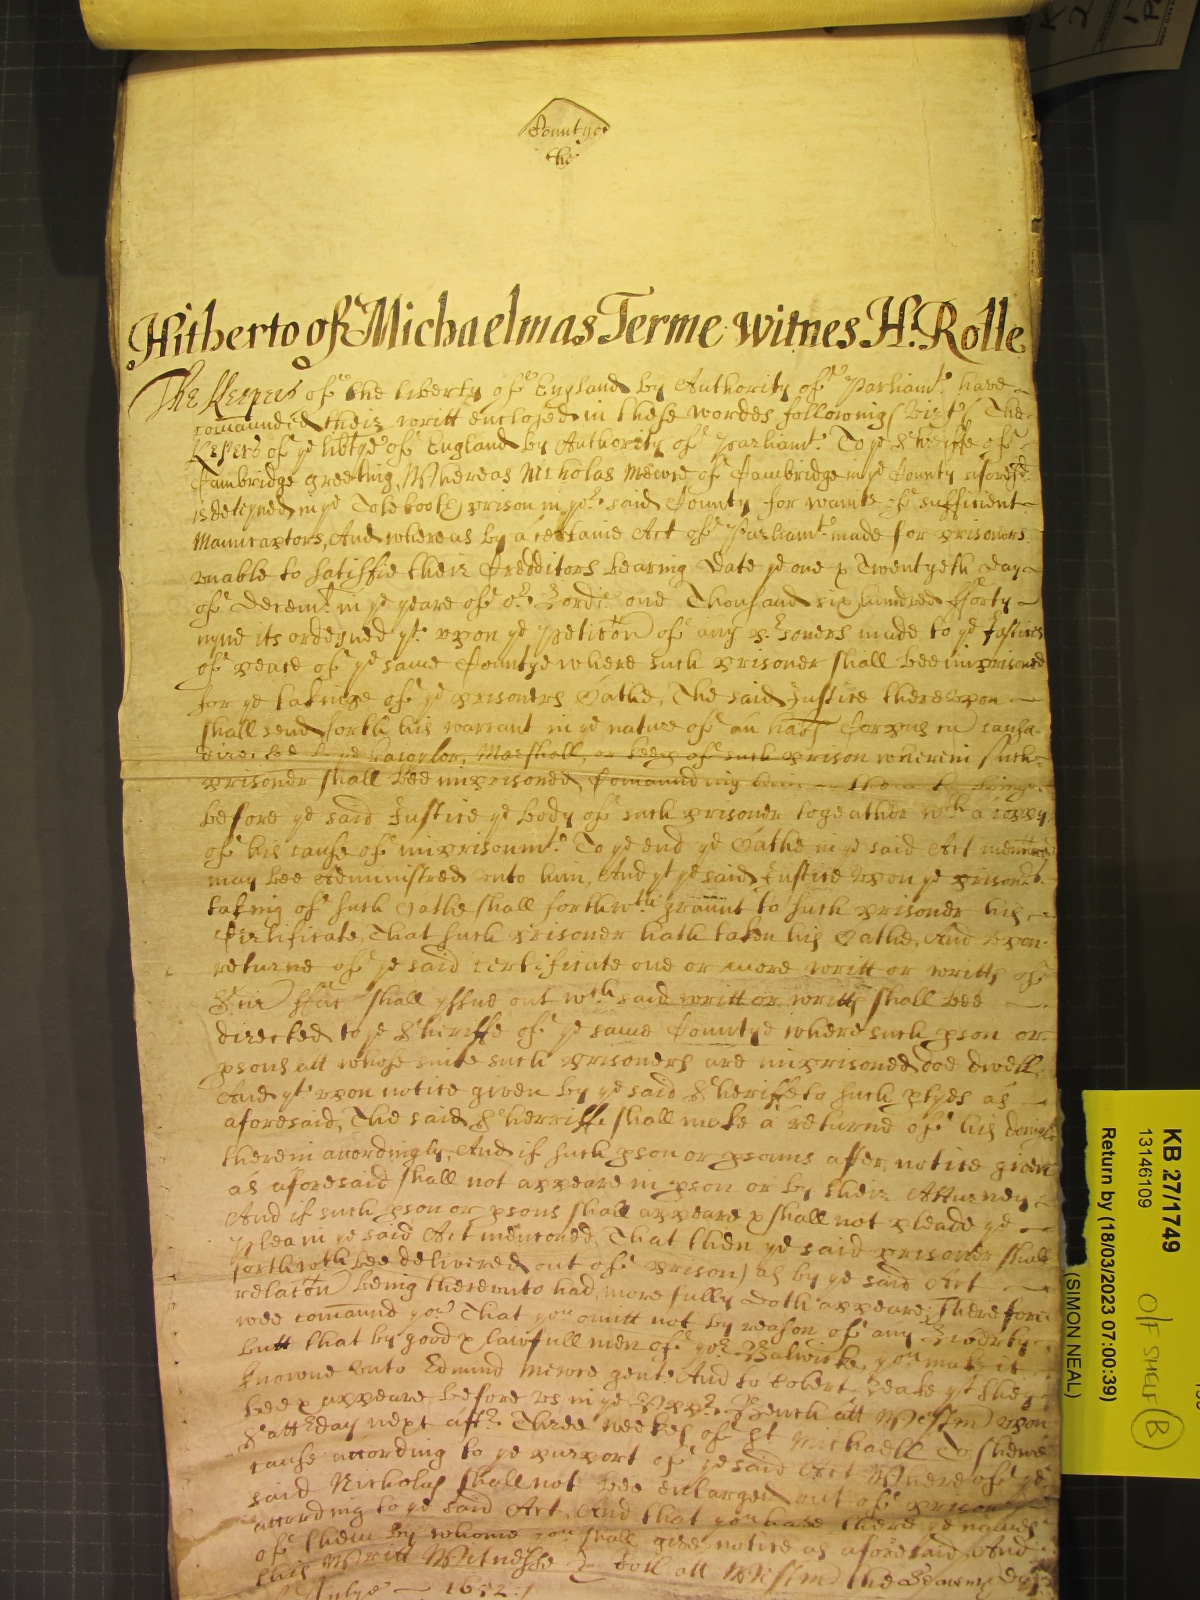 Countye
the
Hitherto of Michaelmas Terme witnes H: Rolle
The Keepers of the liberty of England by Authority of Parliamt. have
comaunded their writt enclosed in these wordes following (vizt) The
Kepers of ye libtye of England by Authority of Parliamt. To ye Sheriffe of
Cambridge greeting, Whereas Nicholas Mewse of Cambridge in ye County aforesd.
is deteyned in ye Tolebooth prison in yor. said County for want of sufficient
Manucaptors, And whereas by a certaine Act of Parliamt. made for prisoners
unable to satisfie their Credditors bearing date ye one & Twentyeth day
of Decembr. in ye yeare of or. Lord one Thousand six hundred fforty
nyne its ordeyned yt. upon ye peticon of any prisoners made to ye Justices
of peace of ye same Countye where such prisoner shall bee imprisoned
for ye takinge of ye prisoners Oathe, The said Justice thereupon
shall send forth his warrant in ye nature of an habs Corpus cu causa
directed to ye Gaoylor, Marshall, or keepr of such prison wherein such
prisoner shall bee imprisoned Comaunding him or them to bringe
before ye said Justice ye body of such prisoner togeather wth a coppy
of his cause of imprisonmt. To ye end ye Oathe in ye said Act menconed
may bee Administred unto him, And yt ye said Justice upon ye prisonrs.
taking of such Oathe shall forthwth graunt to such prisoner his
Certificate, That such prisoner hath taken his Oathe, And upon
returne of ye said certificate one or more writt or writts of
Scir ffac shall yssue out wch said writt or writts shall bee
directed to ye Sheriffe of ye same Countye where such pson or
psons att whose suite such prisoners are imprisoned doe dwell,
And yt upon notice given by ye said Sheriffe to such ptyes as
aforesaid, The said Sherriffe shall make a returne of his doings
therein accordingly, And if such pson or psons after notice given
as aforesaid shall not appeare in pson or by their Atturney
And if such pson or psons shall appeare & shall not pleade ye
Plea in ye said Act menconed, That then ye said prisoner shall
forthwth bee delivered out of prison, as by ye said Act
relacon being thereunto had, more fully doth appeare; Therefore
wee comaund you That you omitt not by reason of any Liberty
butt that by good & lawfull men of yor. Baliwicke you make it
knowne unto Edmund Mewse gent. And to Robert yt they
bee & appeare before us in ye Uppr. Bench att Westmr upon
Satterday next aftr. Three weekes of St Michaell To shewe
cause according to ye purport of ye said Act Wherefore ye
said Nicholas shall not bee enlarged out of prison
according to ye said Act, And that you have there ye names
of them by whome you shall give notice as aforesaid And
this Writt Witnesse H: Roll att Westmr the day
Julye 1652:/
KB 27/1749
13146109
Return by (18/03/2023 07:00:39)
(SIMON NEAL)
O/F SHELF
B